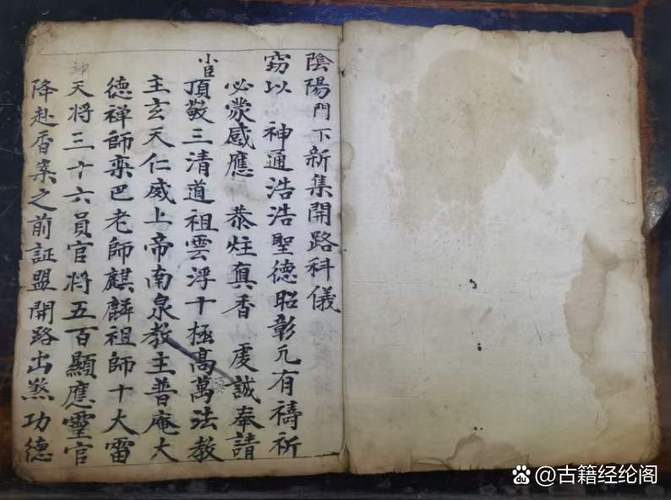 陰陽門下新集開路科儀
窃以 神通浩浩聖德昭彰凢有禱祈
必蒙感應 恭炷真香 虔誠奉請
小臣頂敬三清道祖雲浮十極高萬法教
主玄天仁威上帝南泉教主普庵大
德禅師栾巴老師麒麟祖師十大雷
卸天将三十六員官将五百顯應霊官
降赴香案之前証盟開路出煞功德
古籍经纶阁